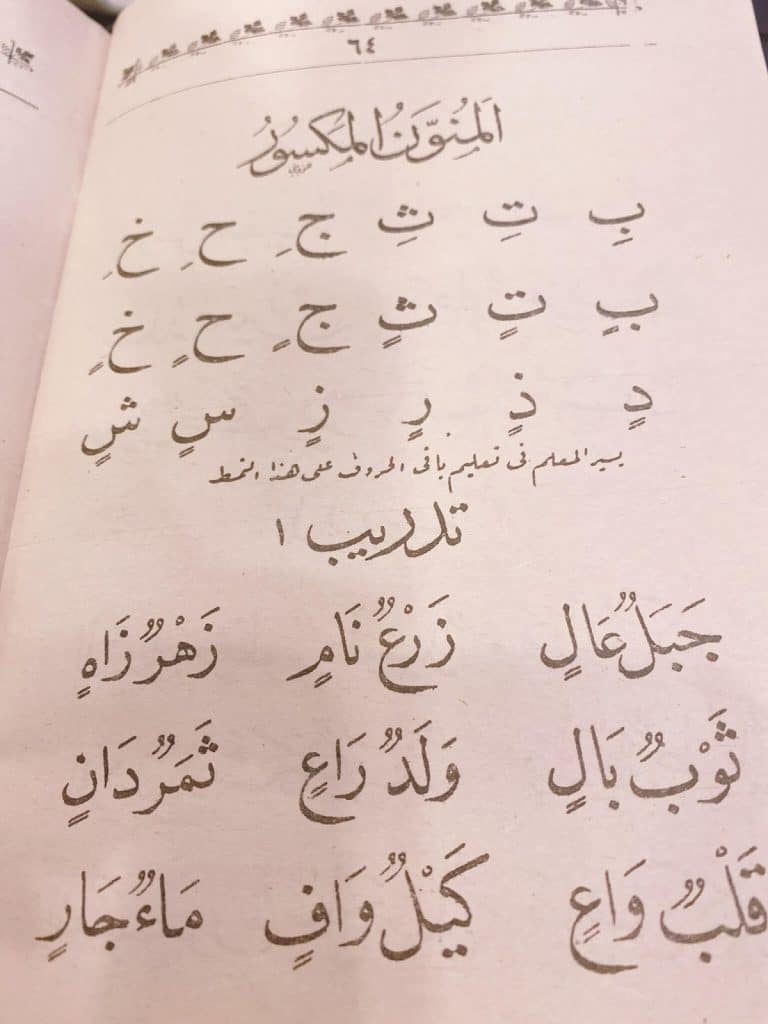 ٦٤
اَلْمُنَوَّنُ الْمَكْسُورُ
بِ تِ ثِ جِ حِ خِ
بٍ تٍ ثٍ جٍ حٍ خٍ
دٍ ذٍ رٍ زٍ سٍ شٍ
يسير المعلم فى تعليم باقى الحروف على هذا النمط
تدريب ١
جَبَلٌ عَالٍ زَرْعٌ نَامٍ زَهْرٌ زَاهٍ
ثَوْبٌ بَالٍ وَلَدٌ رَاعٍ ثَمَرٌ دَانٍ
قَلْبٌ وَاعٍ كَيْلٌ وَافٍ مَاءٌ جَارٍ